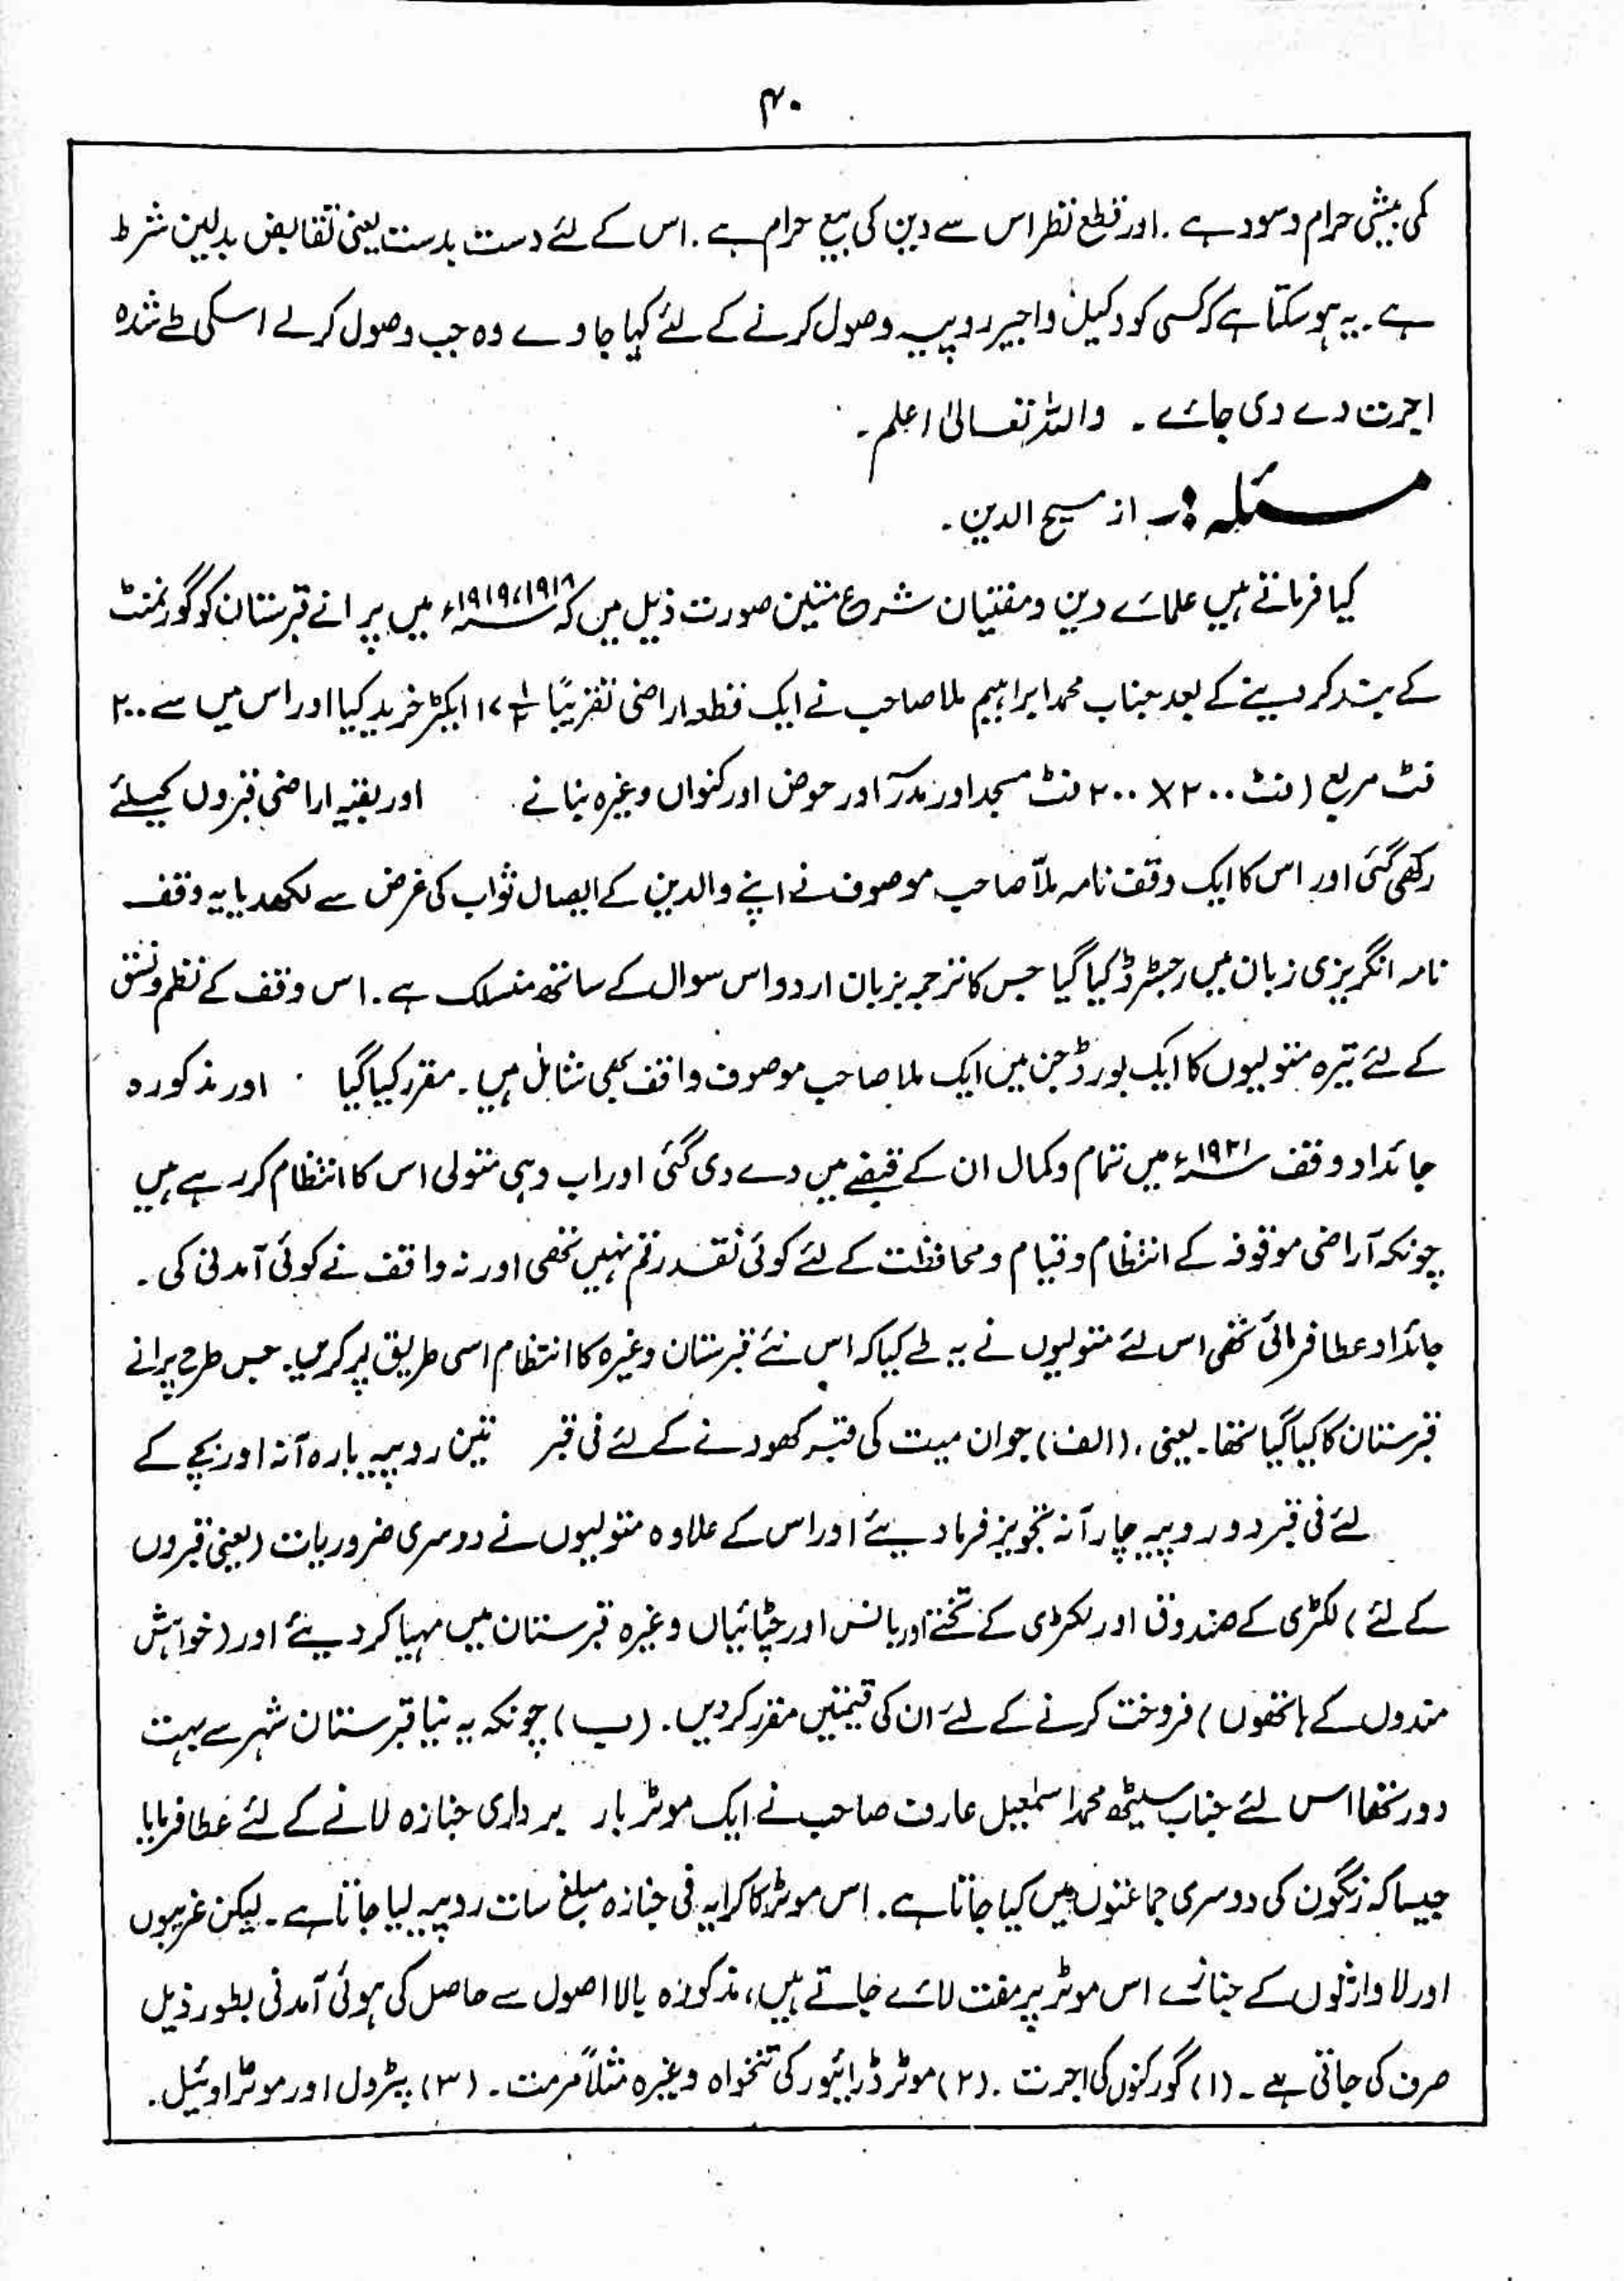 ۴۰
کمی بیشی حرام و سود ہے۔ اور قطع نظر اس سے دین کی بیع حرام ہے۔ اس کے لئے دست بدست یعنی تقابض بدلین شرط
ہے۔ یہ ہو سکتا ہے کہ کسی کو وکیل و اجیر روپیہ وصول کرنے کے لئے کہا جاوے وہ جب وصول کرلے اسکی طے شدہ
اجرت دے دی جائے۔ واللہ تعالیٰ اعلم۔
مسئلہ:۔ از مسیح الدین۔
کیا فرماتے ہیں علمائے دین و مفتیان شرع متین صورت ذیل میں کہ ۱۹۱۸، ۱۹۱۹ء میں پرانے قبرستان کو گورنمنٹ
کے بند کر دینے کے بعد جناب محمد ابراہیم ملا صاحب نے ایک قطعہ اراضی تقریباً ۱۷ ایکڑ خرید کیا اور اس میں سے ۲۰۰
فٹ مربع (فٹ ۲۰۰ × ۲۰۰ فٹ مسجد اور مدرسہ اور حوض اور کنواں وغیرہ بنانے اور بقیہ اراضی قبروں کیلئے
رکھی گئی اور اس کا ایک وقف نامہ ملّا صاحب موصوف نے اپنے والدین کے ایصال ثواب کی غرض سے لکھدیا یہ وقف
نامہ انگریزی زبان میں رجسٹرڈ کیا گیا جس کا ترجمہ بزبان اردو اس سوال کے ساتھ منسلک ہے۔ اس وقف کے نظم و نسق
کے لئے تیرہ متولیوں کا ایک بورڈ جن میں ایک ملا صاحب موصوف واقف بھی شامل ہیں۔ مقرر کیا گیا اور مذکورہ
جائداد وقف ۱۹۲۱ء میں تمام و کمال ان کے قبضے میں دے دی گئی اور اب وہی متولی اس کا انتظام کر رہے ہیں
چونکہ آراضی موقوفہ کے انتظام و قیام و محافظت کے لئے کوئی نقد رقم نہیں تھی اور نہ واقف نے کوئی آمدنی کی۔
جائداد عطا فرمائی تھی اس لئے متولیوں نے یہ طے کیا کہ اس نئے قبرستان وغیرہ کا انتظام اسی طریق پر کریں۔ جس طرح پرانے
قبرستان کا کیا گیا تھا۔ یعنی، (الف) جوان میت کی قبر کھودنے کے لئے فی قبر تین روپیہ بارہ آنہ اور بچے کے
لئے فی قبر دو روپیہ چار آنہ تجویز فرما دیئے اور اس کے علاوہ متولیوں نے دوسری ضروریات (یعنی قبروں
کے لئے) لکڑی کے صندوق اور لکڑی کے تختے اور بانس اور چٹائیاں وغیرہ قبرستان میں مہیا کر دیئے اور (خواہش
مندوں کے ہاتھوں) فروخت کرنے کے لئے ان کی قیمتیں مقرر کر دیں۔ (ب) چونکہ یہ نیا قبرستان شہر سے بہت
دور تھا اس لئے جناب سیٹھ محمد اسمٰعیل عارف صاحب نے ایک موٹر بار برداری جنازہ لانے کے لئے عطا فرمایا
جیسا کہ رنگون کی دوسری جماعتوں میں کیا جاتا ہے۔ اس موٹر کا کرایہ فی جنازہ مبلغ سات روپیہ لیا جاتا ہے۔ لیکن غریبوں
اور لا وارثوں کے جنازے اس موٹر پر مفت لائے جاتے ہیں، مذکورہ بالا اصول سے حاصل کی ہوئی آمدنی بطور ذیل
صرف کی جاتی ہے۔ (۱) گورکنوں کی اجرت۔ (۲) موٹر ڈرائیور کی تنخواہ وغیرہ مثلاً مرمت۔ (۳) پیٹرول اور موٹر اوئیل۔